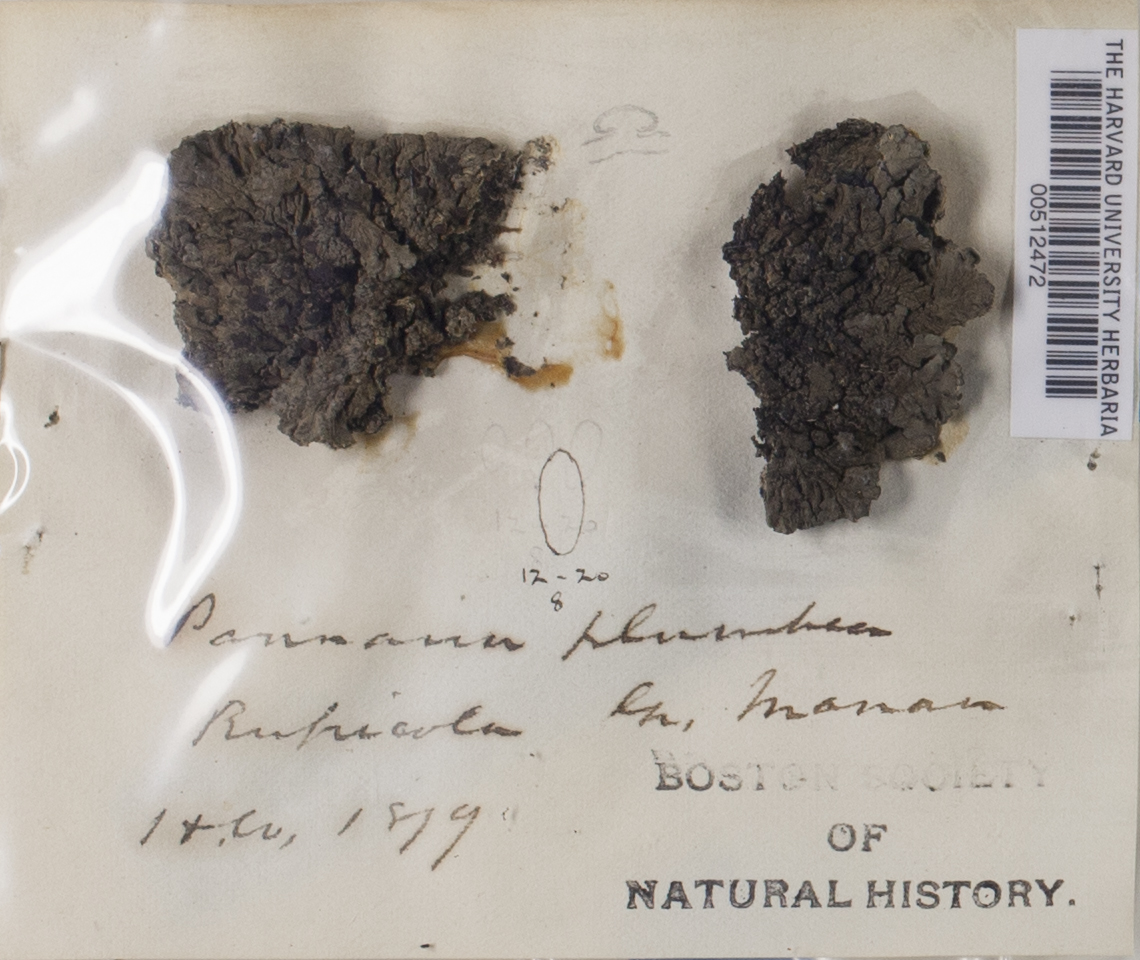 THE HARVARD UNIVERSITY HERBARIA
00512472
12-20
8
Pannaria plumbea
Rupicola Gr, Manan
1879
BOSTON SOCIETY
OF
NATURAL HISTORY.